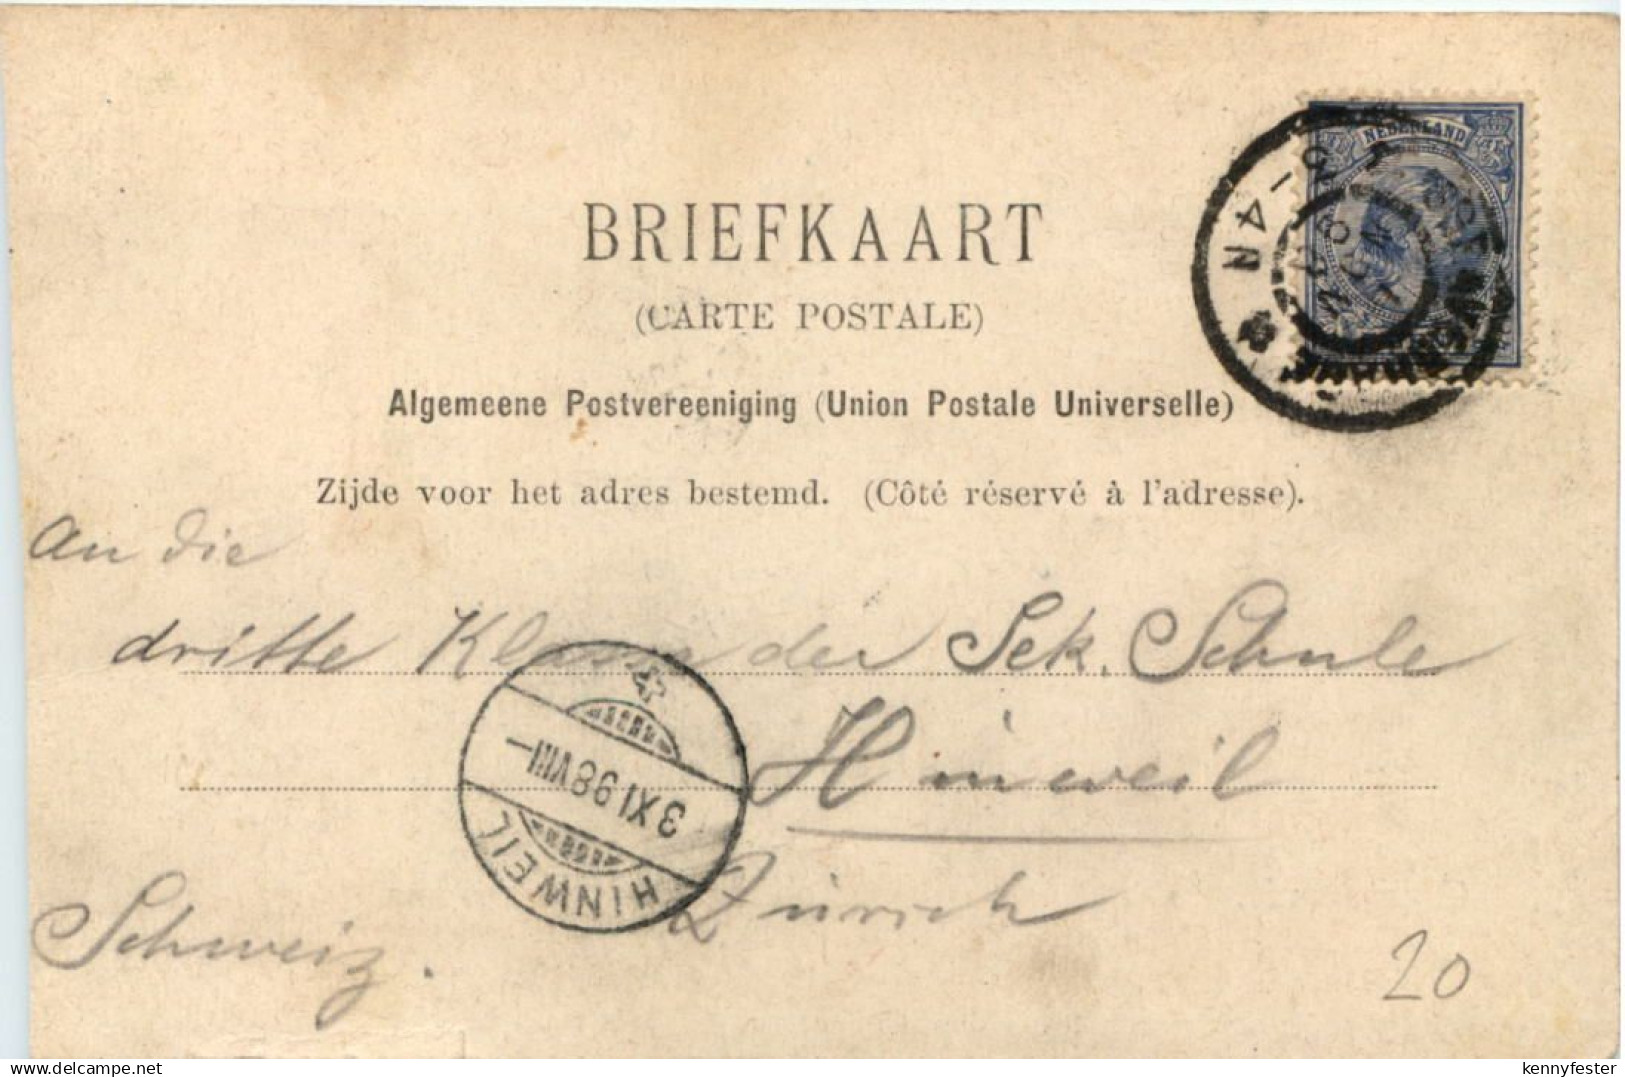 NEDERLAND
BRIEFKAART
(CARTE POSTALE)
Algemeene Postvereeniging (Union Postale Universelle)
Zijde voor het adres bestemd. (Côté réservé à l'adresse).
An die
dritte Klasse der Sek. Schule
Hinweil
Zürich
Schweiz.
3 XI 98 VIII –
HINWEIL
20
www.delcampe.net
kennyfester